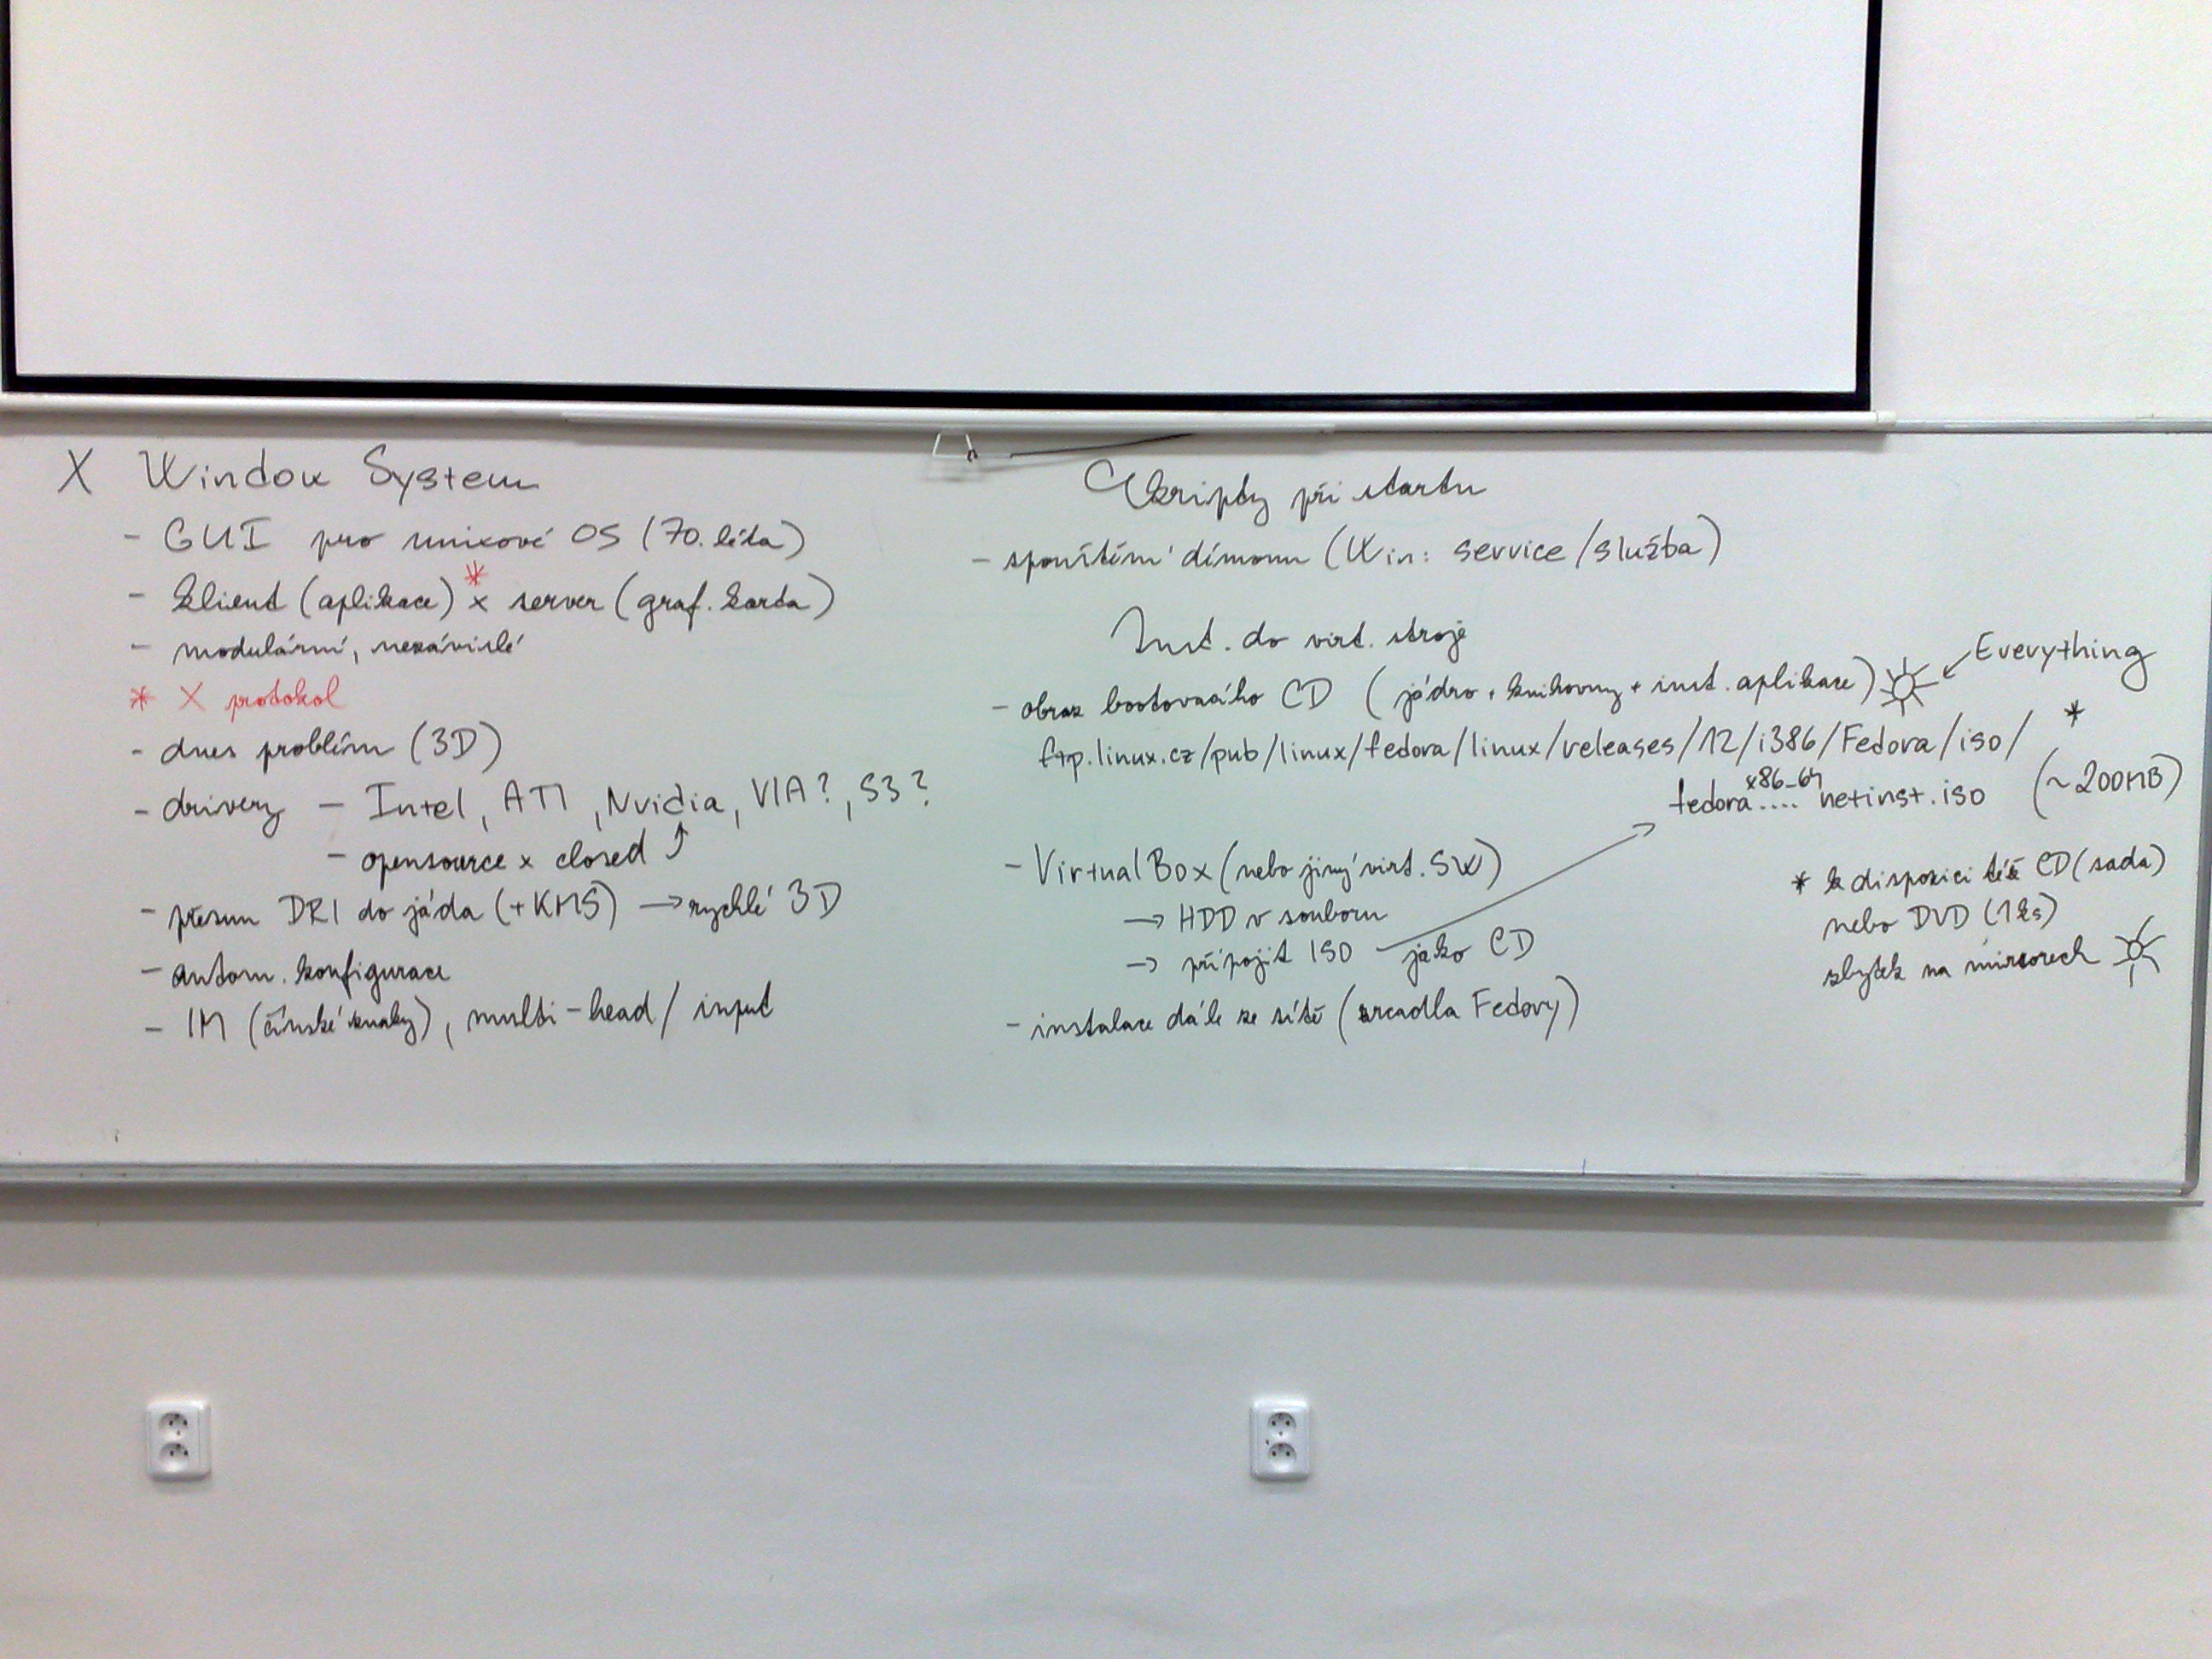 X Window System
- GUI pro unixové OS (70. léta)
- klient (aplikace) * x server (graf. karta)
- modulární, nezávislé
* X protokol
- dnes problém (3D)
- drivery - Intel, ATI, Nvidia, VIA?, S3?
- opensource x closed
- přesun DRI do jáda (+KMS) → rychlé 3D
- autom. konfigurace
- IM (čínské znaky), multi-head / input
Skripty při startu
- spouštění démonu (Win: service/služba)
Inst. do virt. stroje
- obraz bootovacího CD (jádro + knihovny + inst. aplikace) ← Everything
ftp.linux.cz/pub/linux/fedora/linux/releases/12/i386/Fedora/iso/ *
fedora....x86_64 netinst.iso (~200MB)
- VirtualBox (nebo jiný virt. SW)
→ HDD v souboru
→ připojit ISO jako CD
- instalace dále ze sítě (zrcadla Fedory)
* k dispozici též CD (sada)
nebo DVD (1ks)
zbytek na mirrorech